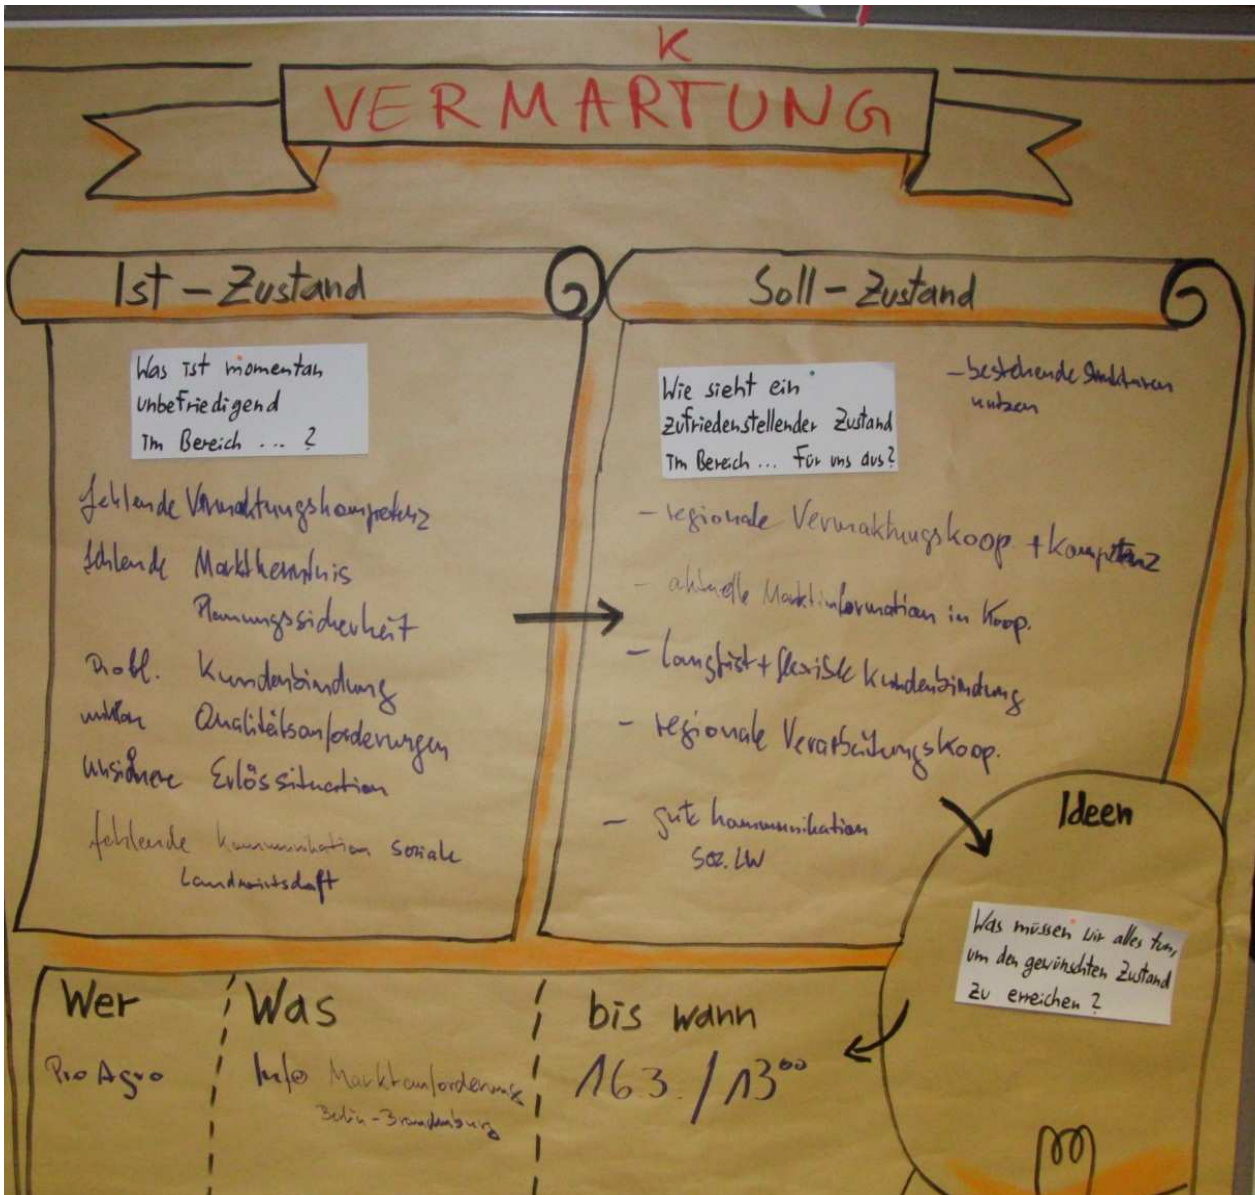 K
VERMARTUNG
Ist - Zustand
Was ist momentan
unbefriedigend
im Bereich ... ?
fehlende Vermarktungskompetenz
fehlende Marktkenntnis
Planungssicherheit
Probl. Kundenbindung
unklare Qualitätsanforderungen
unsichere Erlössituation
fehlende Kommunikation soziale
Landwirtschaft
Soll - Zustand
Wie sieht ein
zufriedenstellender Zustand
im Bereich ... für uns aus?
- bestehende Strukturen
nutzen
- regionale Vermaktungskoop. + Kompetenz
- aktuelle Marktinformation in Koop.
- langfrist + flexible Kundenbindung
- regionale Verarbeitungskoop.
- gute Kommunikation
Soz. LW
Ideen
Was müssen wir alles tun,
um den gewünschten Zustand
zu erreichen?
Wer
Pro Agro
Was
Info Marktanforderung
Berlin-Brandenburg
bis wann
163. / 13⁰⁰